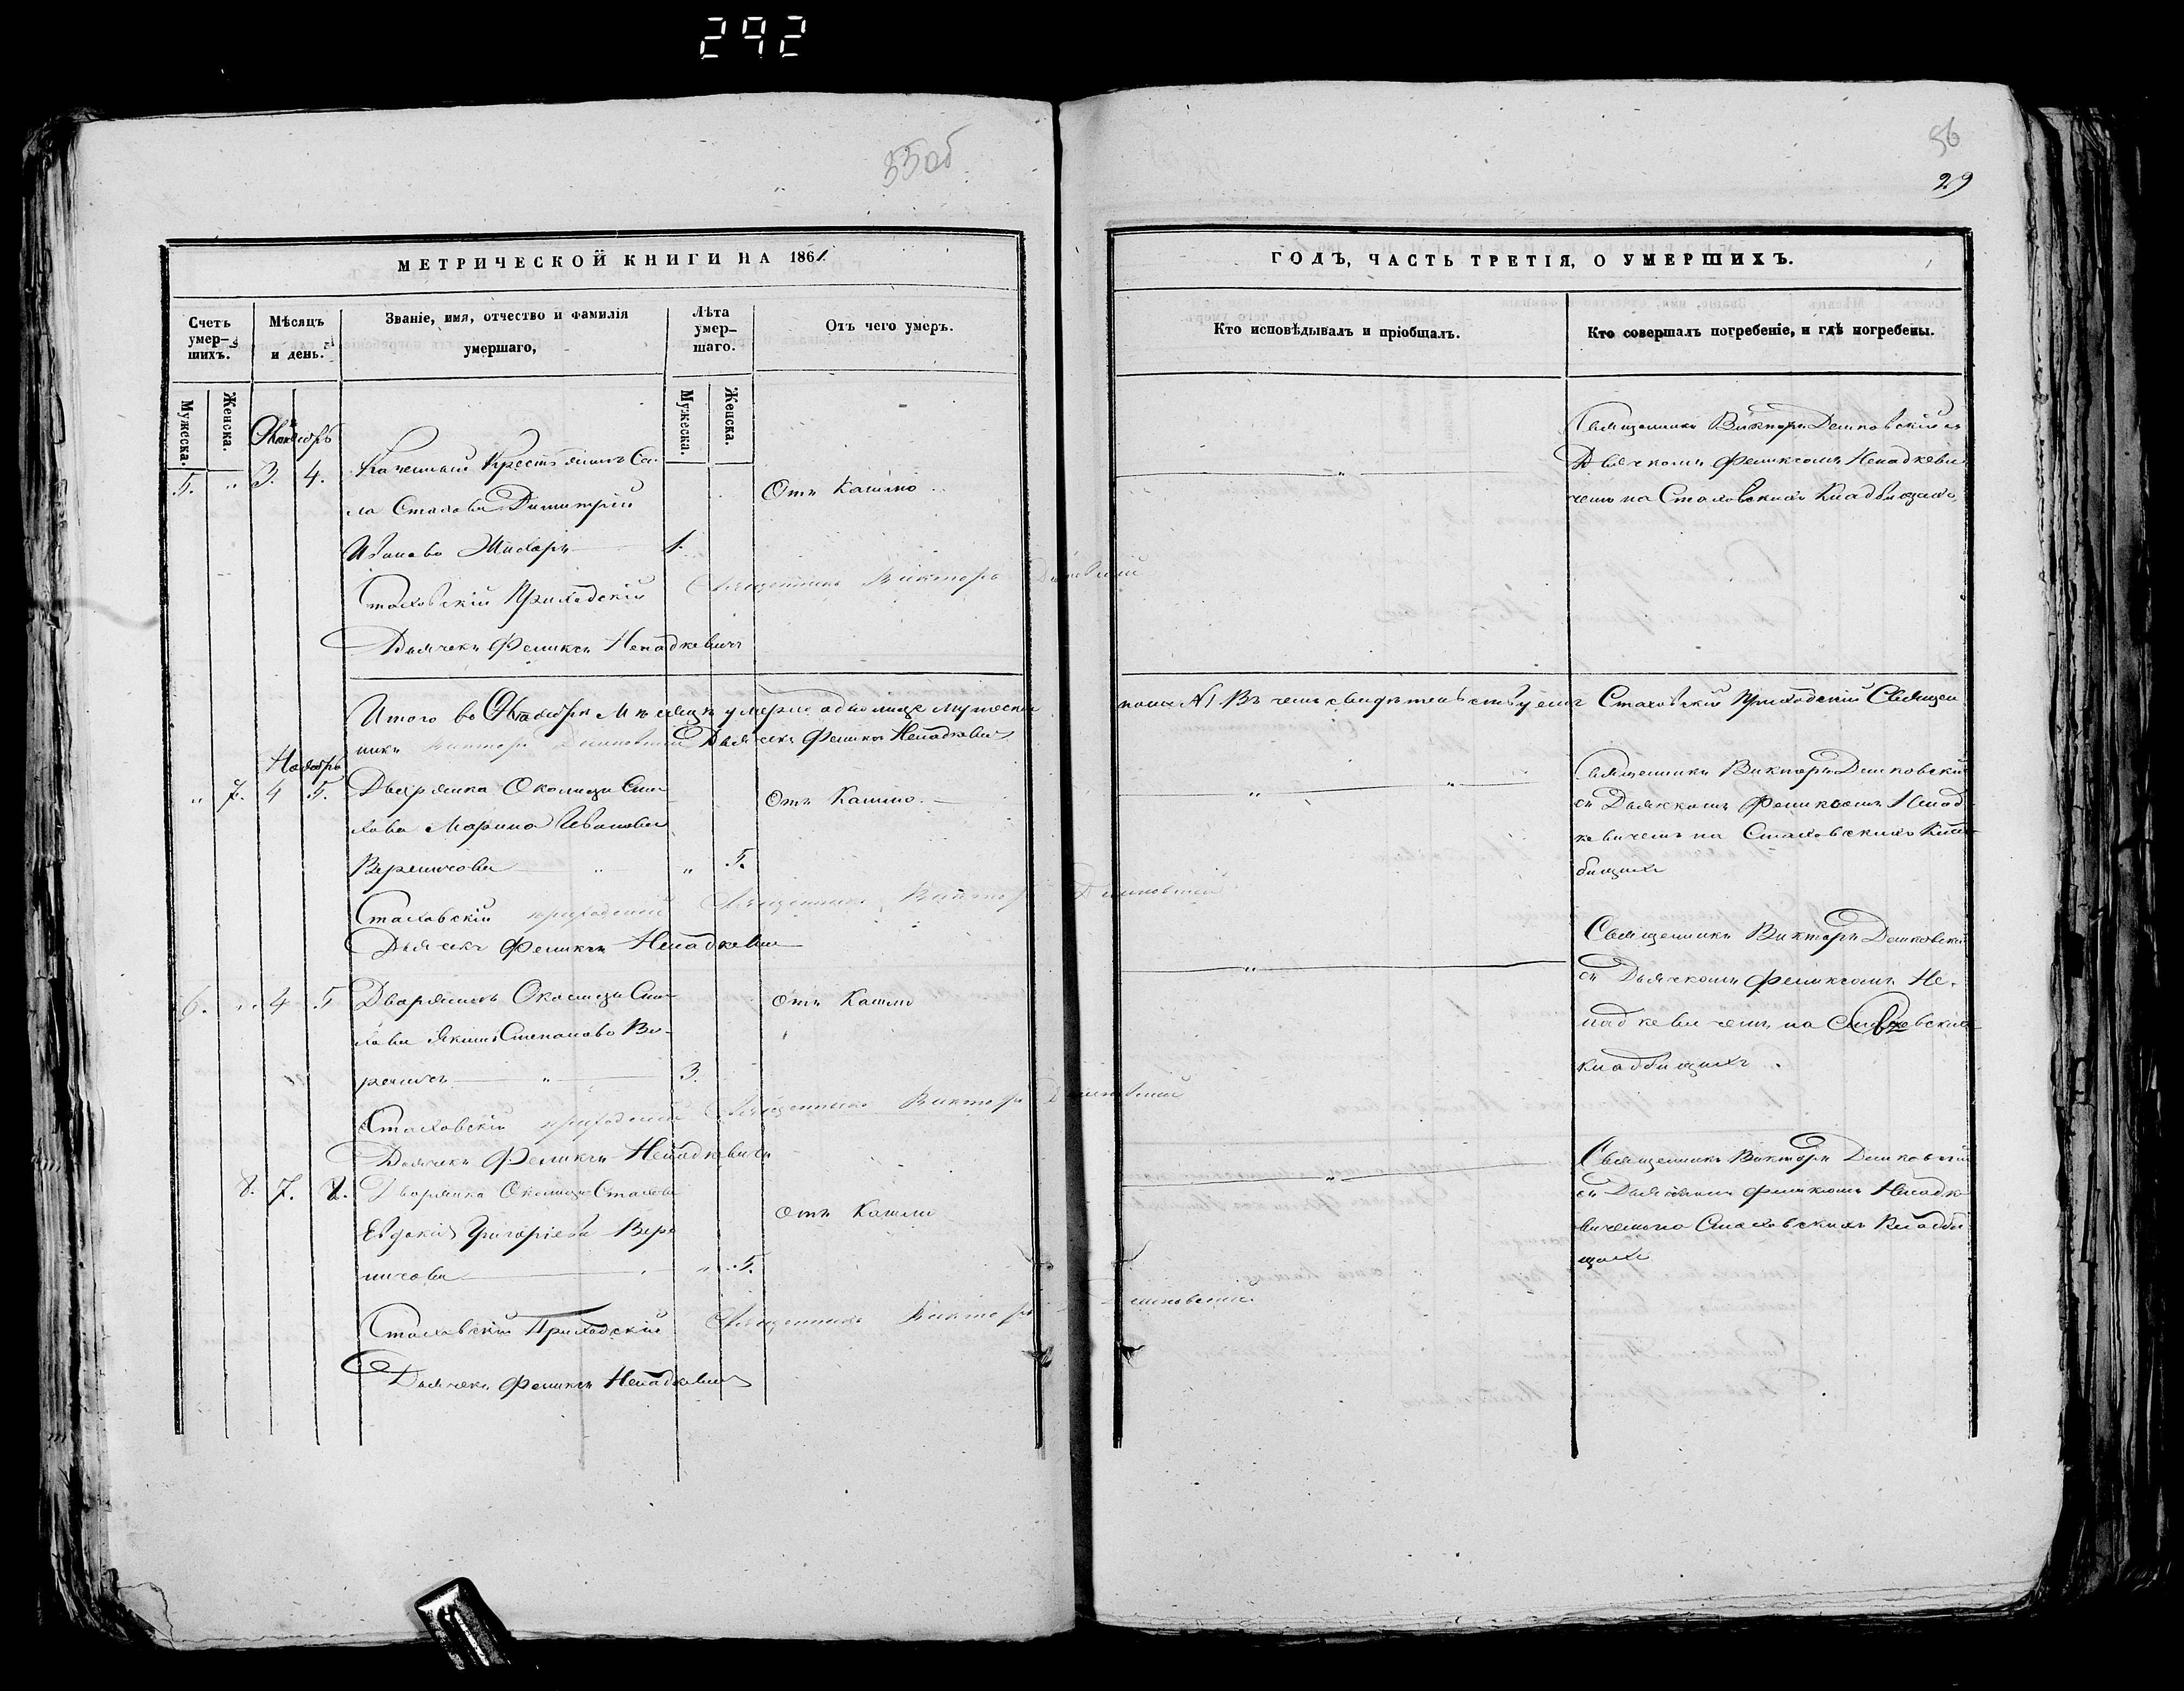 292
55об
56
29
МЕТРИЧЕСКОЙ КНИГИ НА 1861.
ГОДЪ, ЧАСТЬ ТРЕТІЯ, О УМЕРШИХЪ.
Счетъ умер-шихъ.
Мѣсяцъ и день.
Званіе, имя, отчество и фамилія умершаго,
Лѣта умер-шаго.
Отъ чего умеръ.
Кто исповѣдывалъ и пріобщалъ.
Кто совершалъ погребеніе, и гдѣ погребены.
Мужеска.
Женска.
Мужеска.
Женска.
5. " 3. 4.
Казенный Крестьянинъ Се-
ла Стахова Димитрій
Иванова 1.
Отъ Кашлю
Священникъ Викторъ Дешковскій съ
Дьячкомъ Феликсомъ Ненадкеви
чемъ на Стаховскихъ Кладбищахъ
Стаховскій Приходскій Священникъ Викторъ
Дьячекъ Феликсъ Ненадкевичъ
Итого во Октябрѣ Мѣсяцѣ умерло одно лице мужеска
пола №1 Въ чемъ свидѣтельствуемъ Стаховскій Приходскій Священ
никъ Викторъ Дешковскій Дьячекъ Феликсъ Ненадкевичъ
Ноябрь
" 7. 4 5.
Дворянка Околицы Ста
хова Марина Иванова
Вереничова " " 5.
Отъ Кашлю
Священникъ Викторъ Дешковскій
съ Дьячкомъ Феликсомъ Ненад
кевичемъ на Стаховскихъ Клад
бищахъ
Стаховскій приходскій Священникъ Викторъ Дешковскій
Дьячекъ Феликсъ Ненадкевичъ
6. " 4 5
Дворянинъ Околицы Ста
хова Якимъ Степановъ Ве-
реничъ " 3.
Отъ Кашлю
Священникъ Викторъ Дешковскій
съ Дьячкомъ Феликсомъ Не-
надкевичемъ на Стаховскихъ
кладбищахъ.
Стаховскій приходскій Священникъ Викторъ Дешковскій
Дьячекъ Феликсъ Ненадкевичъ
8. 7. 8.
Дворянка Околицы Стахова
Евдокія Григоріева Вере
ничова " 5.
Отъ Кашлю
Священникъ Викторъ Дешковскій
съ Дьячкомъ Феликсомъ Ненадке
вичемъ на Стаховскихъ Кладби
щахъ
Стаховскій Приходскій Священникъ Викторъ Дешковскій
Дьячекъ Феликсъ Ненадкевичъ